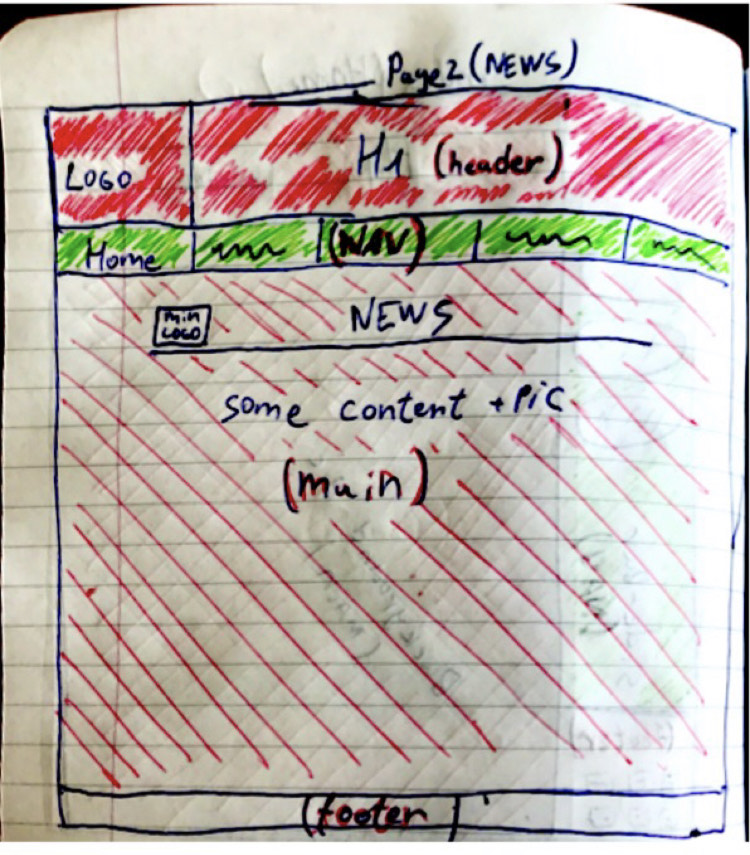 Page 2 (NEWS)
LOGO H1 (header)
Home (NAV)
min LOGO NEWS
some content + Pic
(main)
(footer)